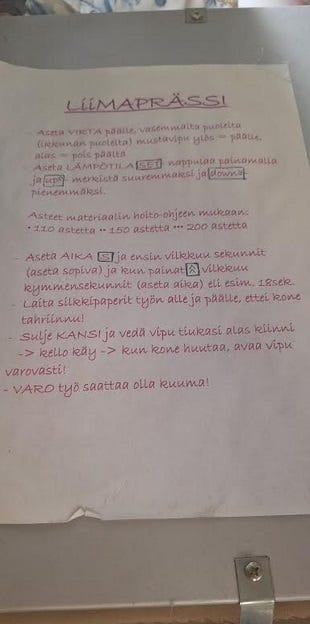 LiiMAPRÄSSI
- Aseta VIRTA päälle, vasemmalta puolelta
(ikkunan puolelta) mustavipu ylös = päälle,
alas = pois päältä
- Aseta LÄMPÖTILA SET nappulaa painamalla
ja up^ merkistä suuremmaksi ja down
pienemmäksi.
Asteet materiaalin hoito-ohjeen mukaan:
• 110 astetta •• 150 astetta ••• 200 astetta
- Aseta AIKA S ja ensin vilkkuu sekunnit
(aseta sopiva) ja kun painat vilkkuu
kymmensekunnit (aseta aika) eli esim. 18sek.
- Laita silkkipaperit työn alle ja päälle, ettei kone
tahriinnu!
- Sulje KANSI ja vedä vipu tiukasi alas kiinni
-> kello käy -> kun kone huutaa, avaa vipu
varovasti!
- VARO työ saattaa olla kuuma!